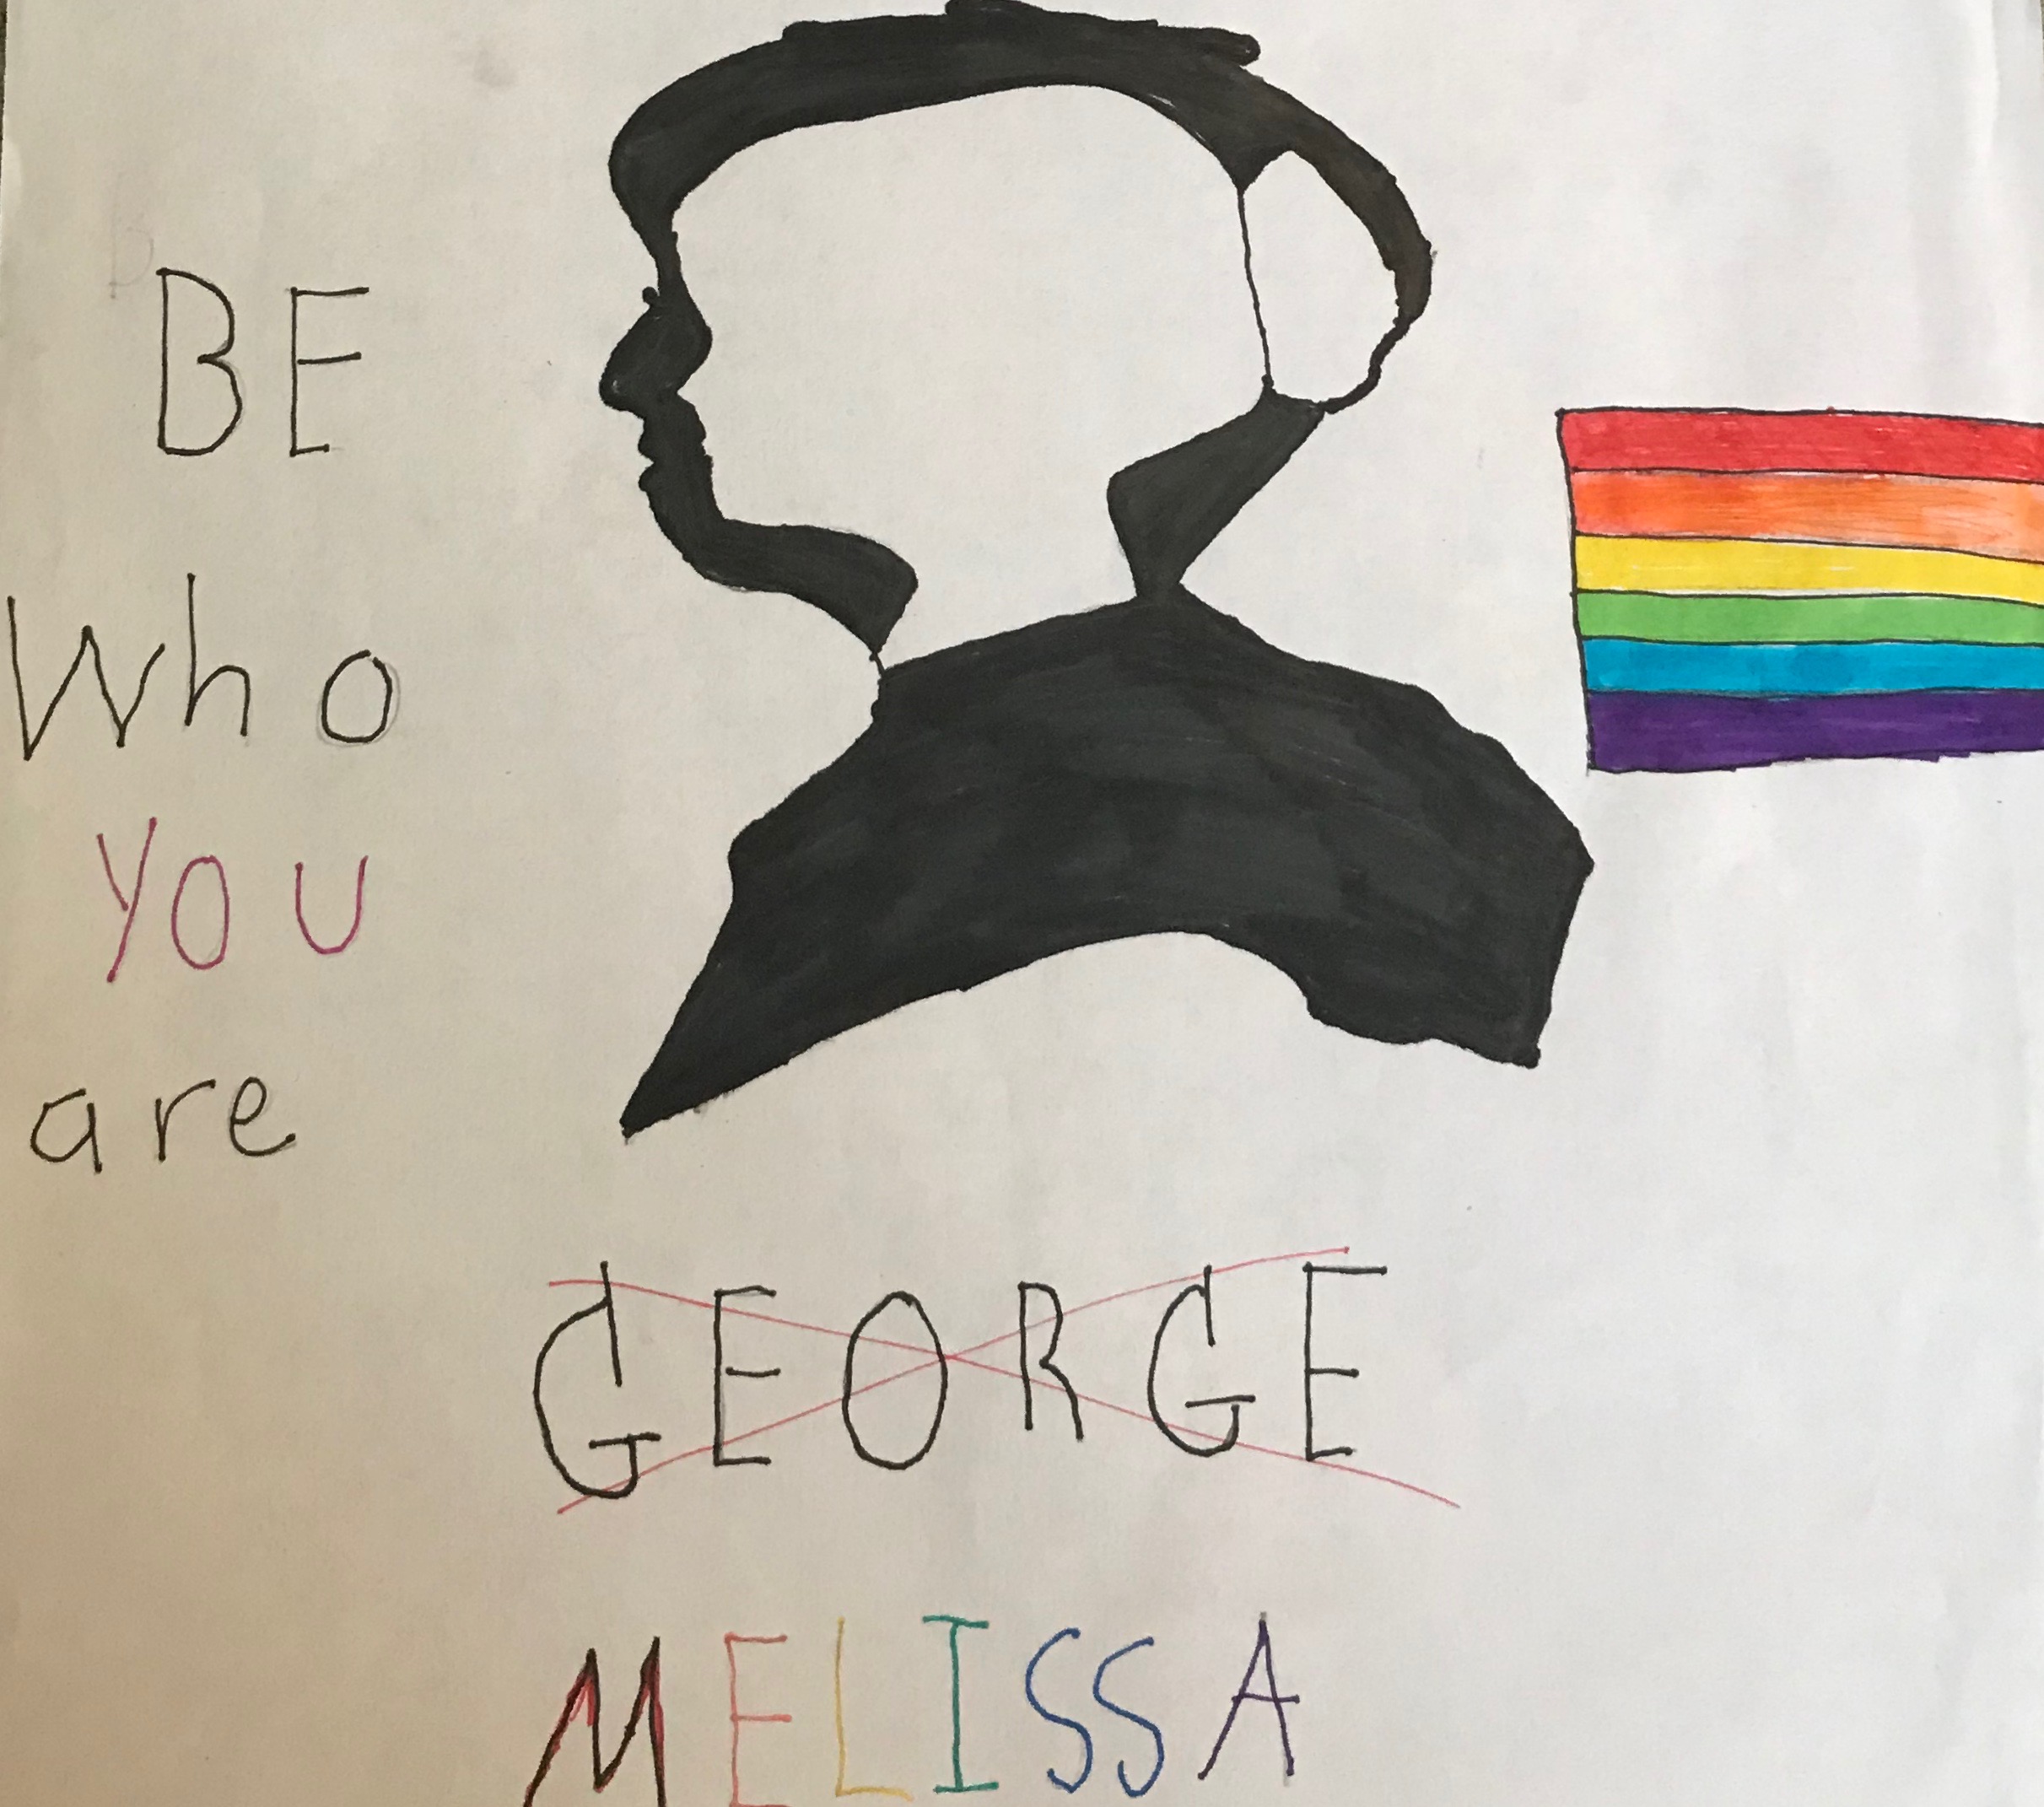 BE
Who
YOU
are
GEORGE
MELISSA